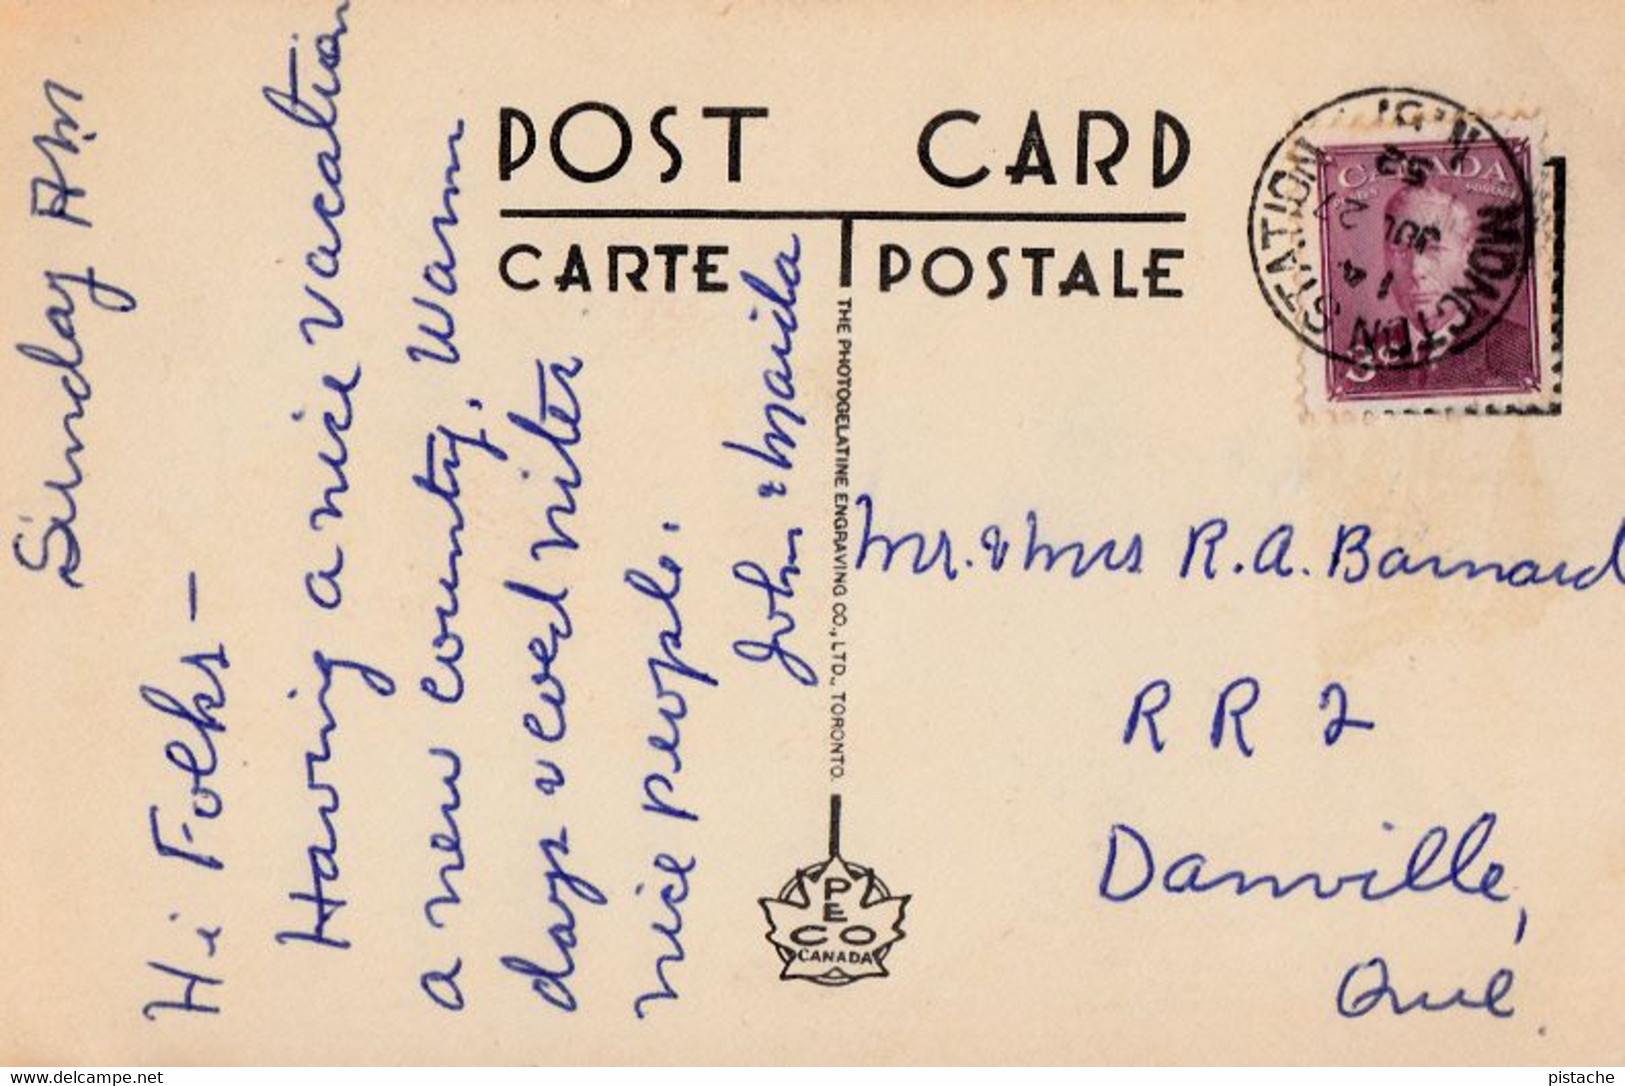 POST CARD
CARTE POSTALE
Sunday AM
Hi Folks –
Having a nice vacation
a new country. Warm
days & cool nites
nice people.
John & Maida
THE PHOTOGELATINE ENGRAVING CO., LTD., TORONTO.
PECO
CANADA
MONCTON STATION
N.B.
1 4
JUL 27
52
CANADA
POSTES POSTAGE
3¢
Mr. & Mrs R. A. Barnard
R R 2
Danville,
Que.
www.delcampe.net
pistache